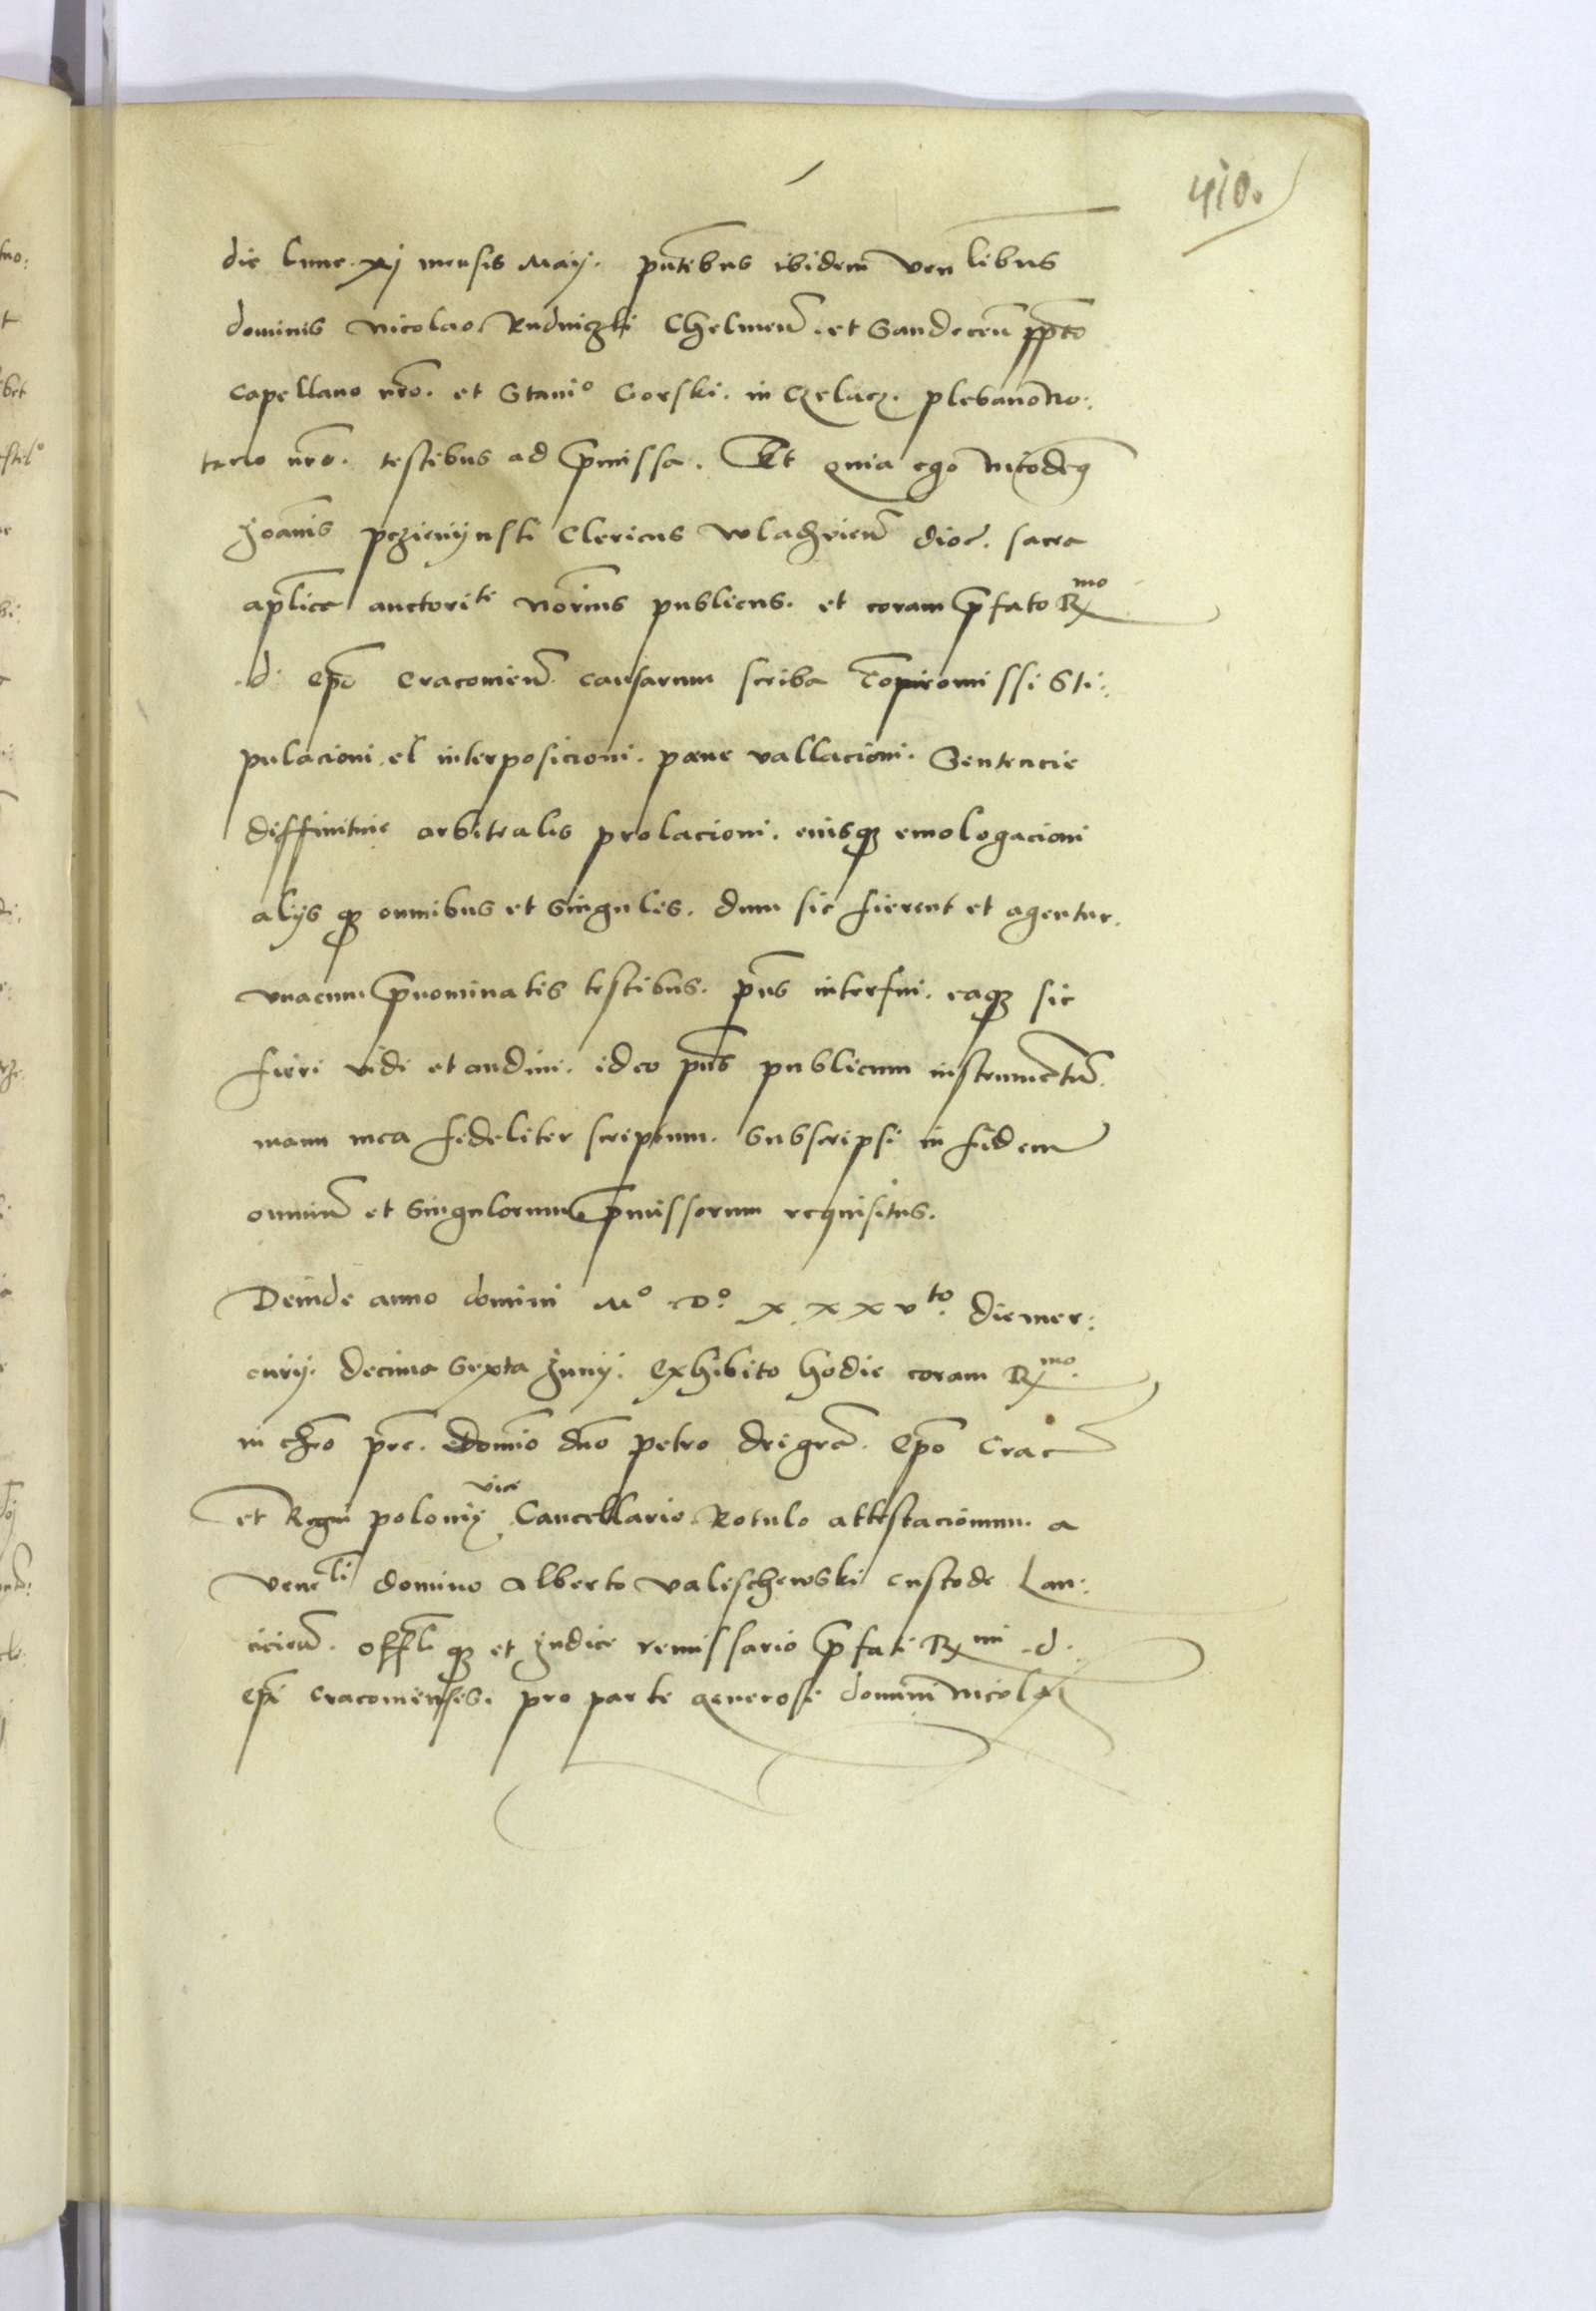 410.
die lune. xj mensis Maij. pntibus ibidem venlibus
dominis nicolao Rudniczki Chelmen. et Sandecen ppto
capellano nro. et Stanio Gorski. in Czelacz. plebano No:
tario nro. testibus ad pmissa. Et quia ego Nicodeg
Joannis pczieniynski Clericus wladzvien dioc. sacra
aplica auctorite norius publicus. et coram pfato Rmo
d. epo Cracovien. causarum scriba Copromissi Sti:
pulacioni. et interposicioni. pene vallacioni. Sentencie
diffinitive arbitralis prolacioni. eiusq emologacioni
alijs q omnibus et singulis. dum sic fierent et agentur.
unacum pnominatis testibus. pns interfui. eaq sic
fieri vidi et audivi. ideo pns publicum instrumentu
manu mea fideliter scriptum. Subscripsi in fidem
omniu et singulorum pmissorum requisitus.
Deinde anno domini Mo Do. x x x v to. die mer:
curij. decima Sexta Junij. Exhibito hodie coram Rmo.
in chro pre. domio dno petro dei gra. epo Crac
et Regni polonij vice Cancellario. Rotulo attestacionum. a
veneli domino Alberto valischewski custode Lan:
cicien. offli q et Judice remissario pfati Rmi. d.
epi cracoviensis. pro parte generosi domini Nicolai